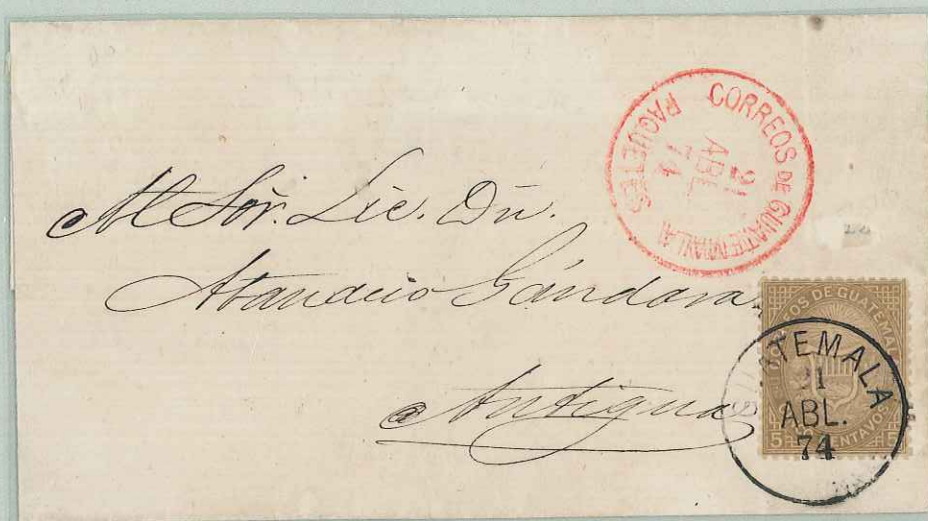 CORREOS DE GUATEMALA
21
ABL
74
PAQUETES
Al Sōr. Lic. Dn.
Atanacio Gándara
Antigua
CORREOS DE GUATEMALA
5 CENTAVOS 5
GUATEMALA
21
ABL.
74